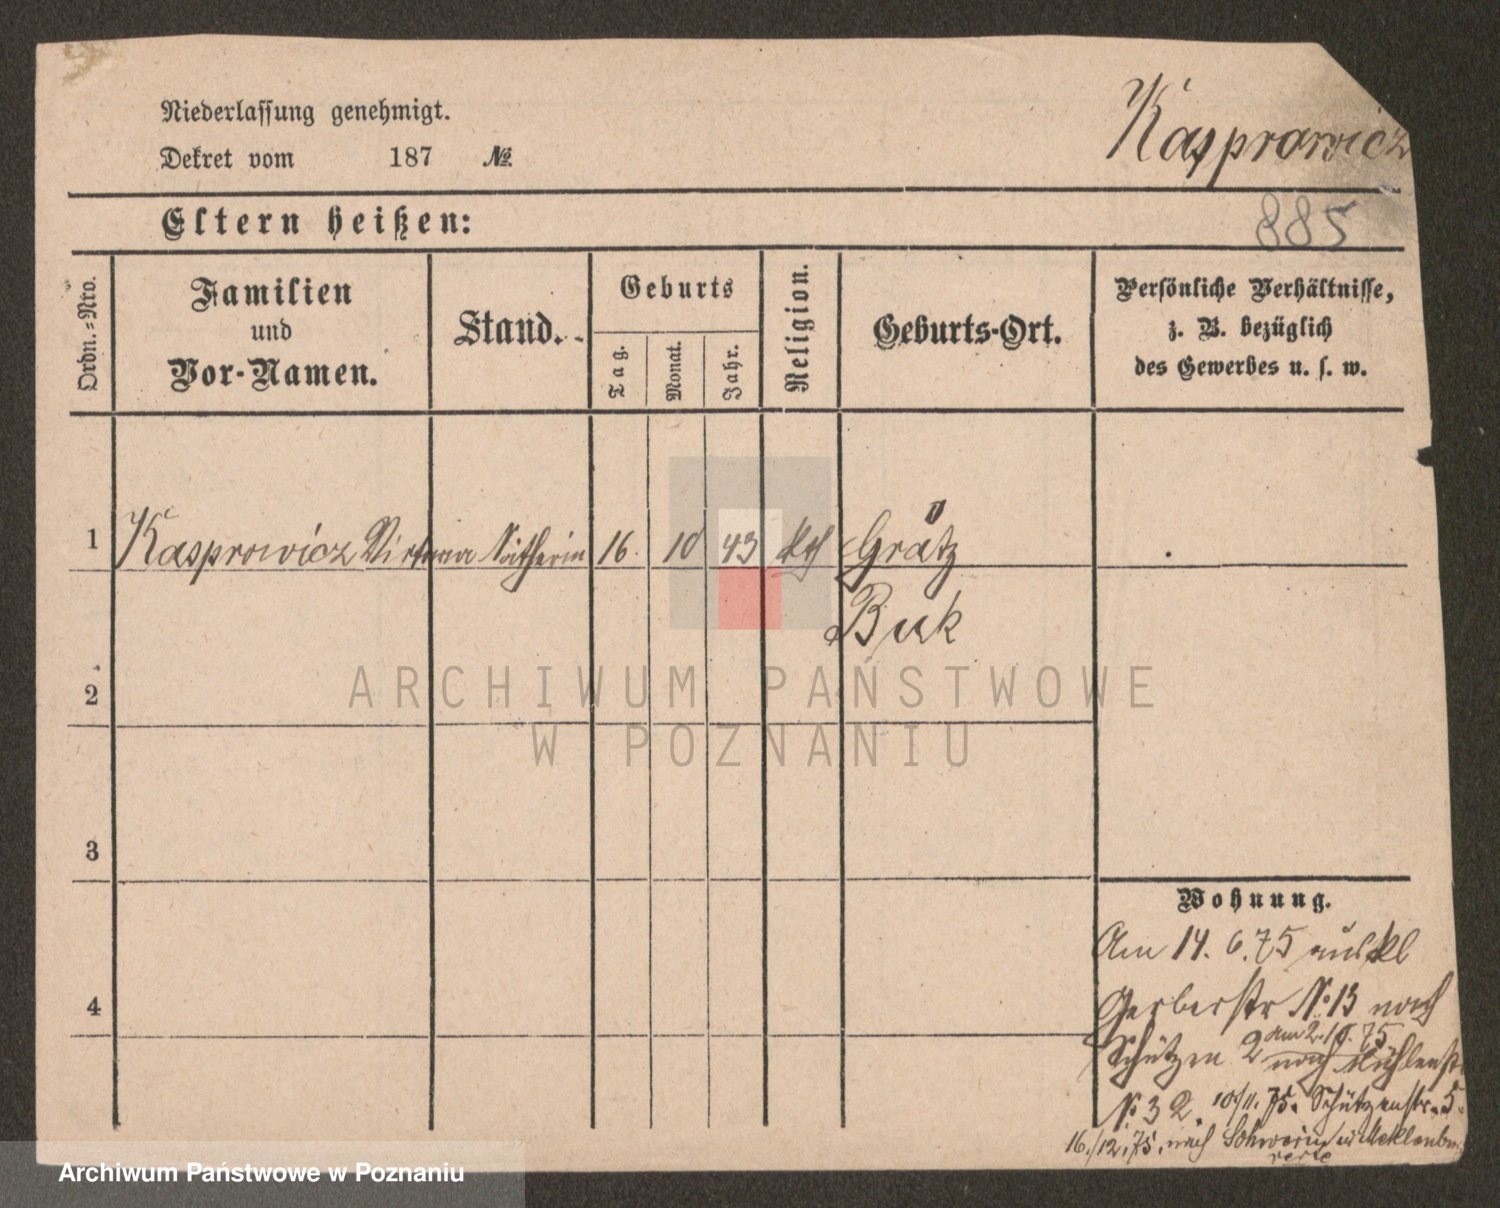 Niederlassung genehmigt.
Kasprowicz
Dekret vom 187 №
Eltern heißen:
885
Ordn.=Nro.
Familien
und
Vor-Namen.
Stand.
Geburts
Tag.
Monat.
Jahr.
Religion.
Geburts-Ort.
Persönliche Verhältnisse,
z. B. bezüglich
des Gewerbes u. s. w.
1 Kasprowicz 16. 10 43 kth Grätz
Buk
2
3
4
Wohnung.
Am 14. 6. 75 aus kl
Gerberstr No 13 nach
am 2. 10. 75
Schützen 2 nach Mühlenst
No 32. 10/11. 75. Schützenstr. 5.
16./12. 75. nach Schwerin in Mecklenbu
ARCHIWUM PAŃSTWOWE
W POZNANIU
Archiwum Państwowe w Poznaniu